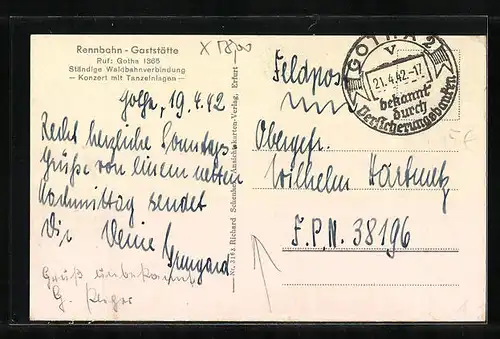 Rennbahn - Gaststätte
Ruf: Gotha 1365
Ständige Waldbahnverbindung
— Konzert mit Tanzeinlagen —
Gotha, 19.4.42
Recht herzliche Sonntags-
Grüße von einem netten
Nachmittag sendet
Dir Deine Irmgard
Gruß unbekannt
G.
Nr. 3163 Richard Schenker, Ansichtskarten-Verlag, Erfurt
X 1800
Feldpost
GOTHA 2
v
21.4.42-17
bekannt
durch
Versicherungsbanken
Obergefr.
Wilhelm Hartmetz
F.P.N. 38196